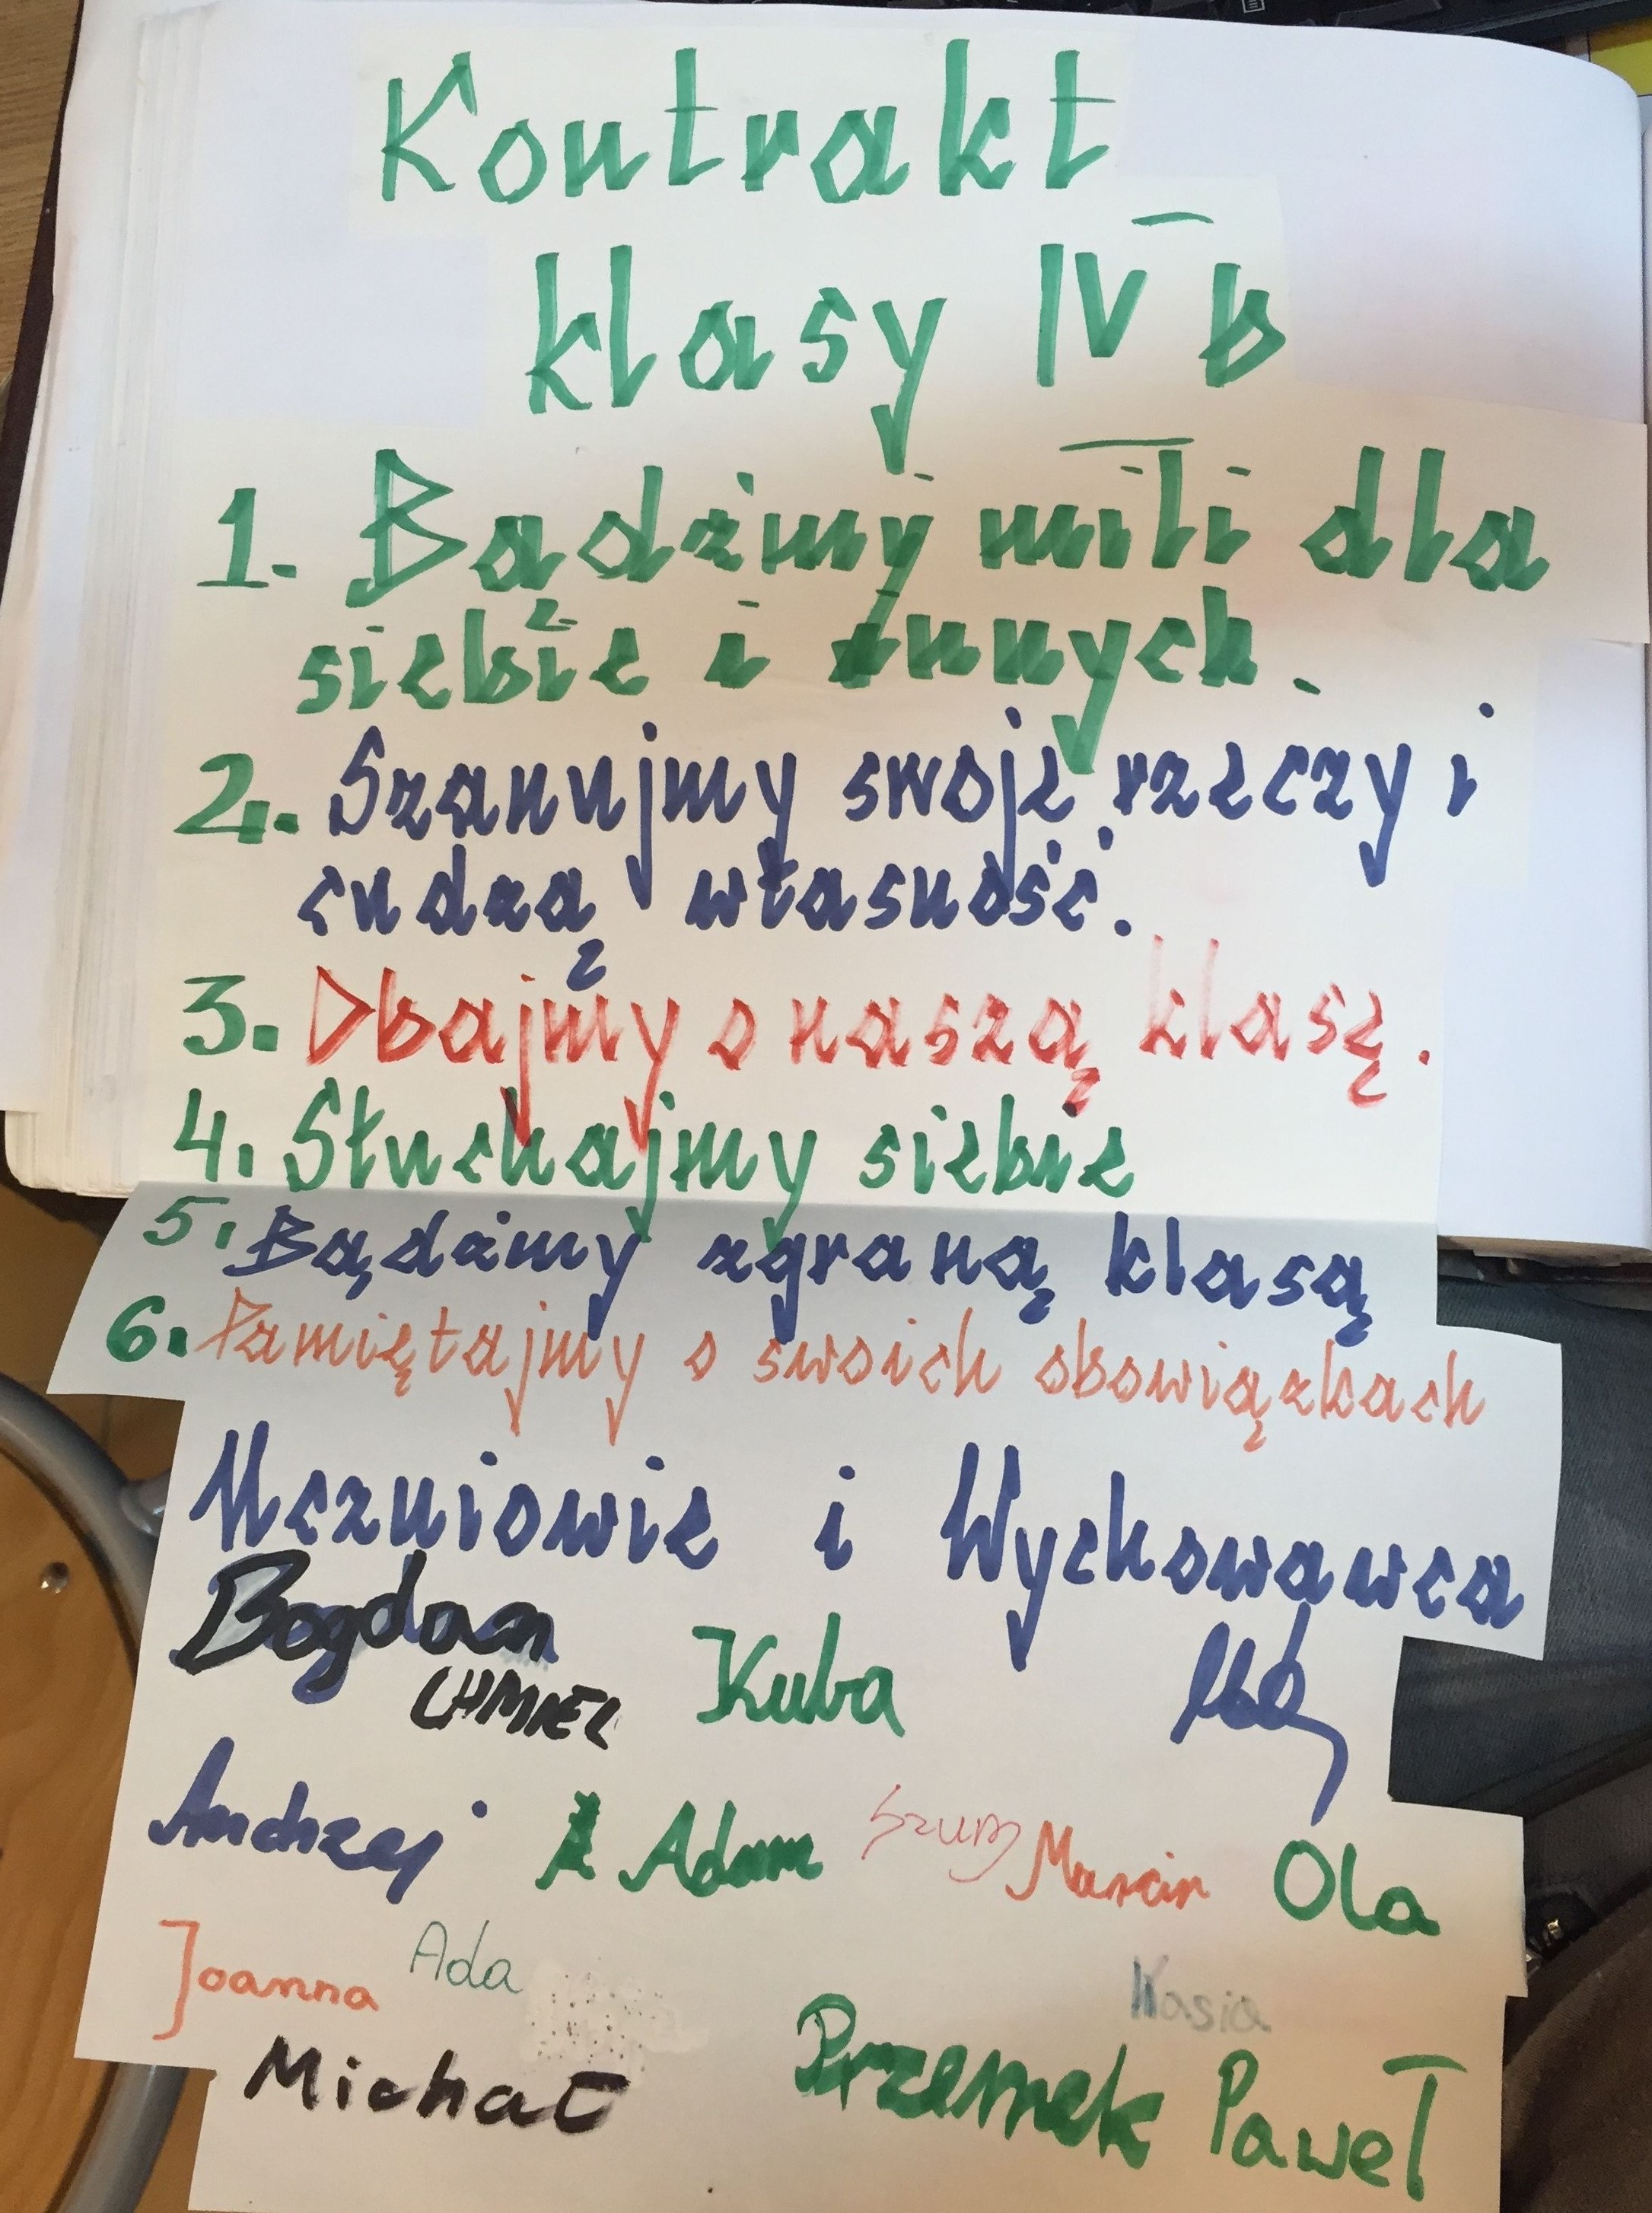 Kontrakt
klasy IV b
1. Bądźmy mili dla
siebie i innych.
2. Szanujmy swoje rzeczy i
cudzą własność.
3. Dbajmy o naszą klasę.
4. Słuchajmy siebie
5. Bądźmy zgraną klasą
6. Pamiętajmy o swoich obowiązkach
Uczniowie i Wychowawca
Bogdan
CHMIEL Kuba
Andrzej Adam Marcin Ola
Joanna Ada Kasia
Michał Przemek Paweł